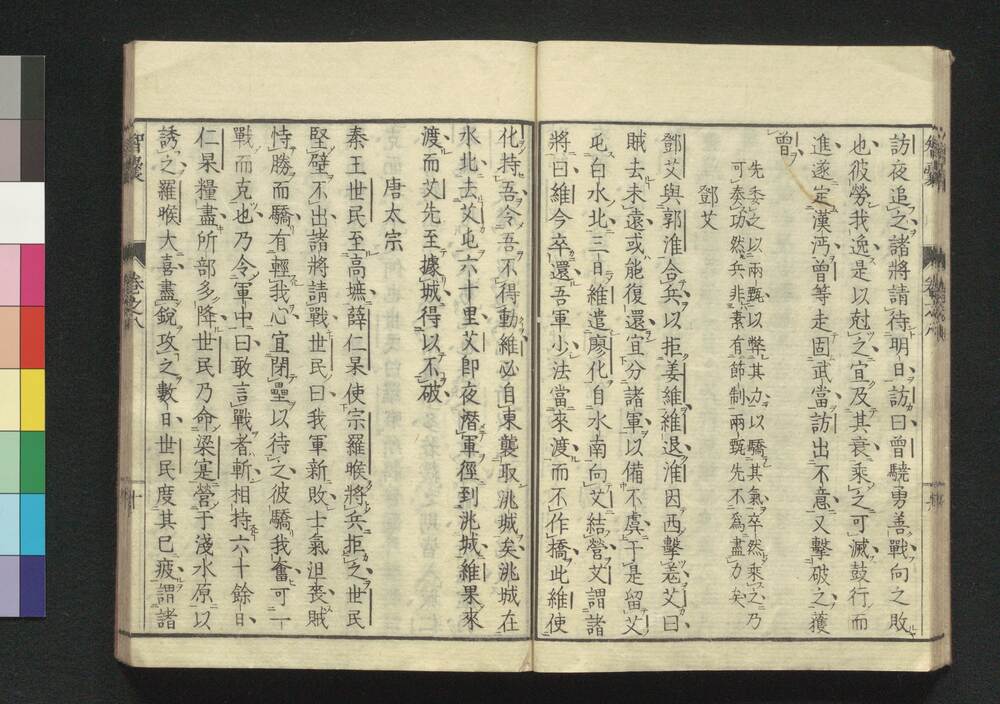 訪夜追之諸將請待明日訪曰曾驍勇善戰向之敗
也彼勞我逸是以尅之宜及其衰乘之可滅鼓行而
進遂定漢沔曾等走固武當訪出不意又擊破之獲
曾
先委之以兩甄以弊其力以驕其氣卒然乘之乃
可奏功然兵非素有節制兩甄先不爲盡力矣
鄧艾
鄧艾與郭淮合兵以拒姜維維退淮因西擊羌艾曰
賊去未遠或能復還宜分諸軍以備不虞于是留艾
屯白水北三日維遣廖化自水南向艾結營艾謂諸
將曰維今卒還吾軍少法當來渡而不作橋此維使
化持吾令吾不得動維必自東襲取洮城矣洮城在
水北去艾屯六十里艾卽夜潛軍徑到洮城維果來
渡而艾先至據城得以不破
唐太宗
秦王世民至高墌薛仁杲使宗羅㬋將兵拒之世民
堅壁不出諸將請戰世民曰我軍新敗士氣沮喪賊
恃勝而驕有輕我心宜閉壘以待之彼驕我奮可一
戰而克也乃令軍中曰敢言戰者斬相持六十餘日
仁杲糧盡所部多降世民乃命梁寔營于淺水原以
誘之羅㬋大喜盡銳攻之數日世民度其已疲謂諸
智囊
卷之八
十